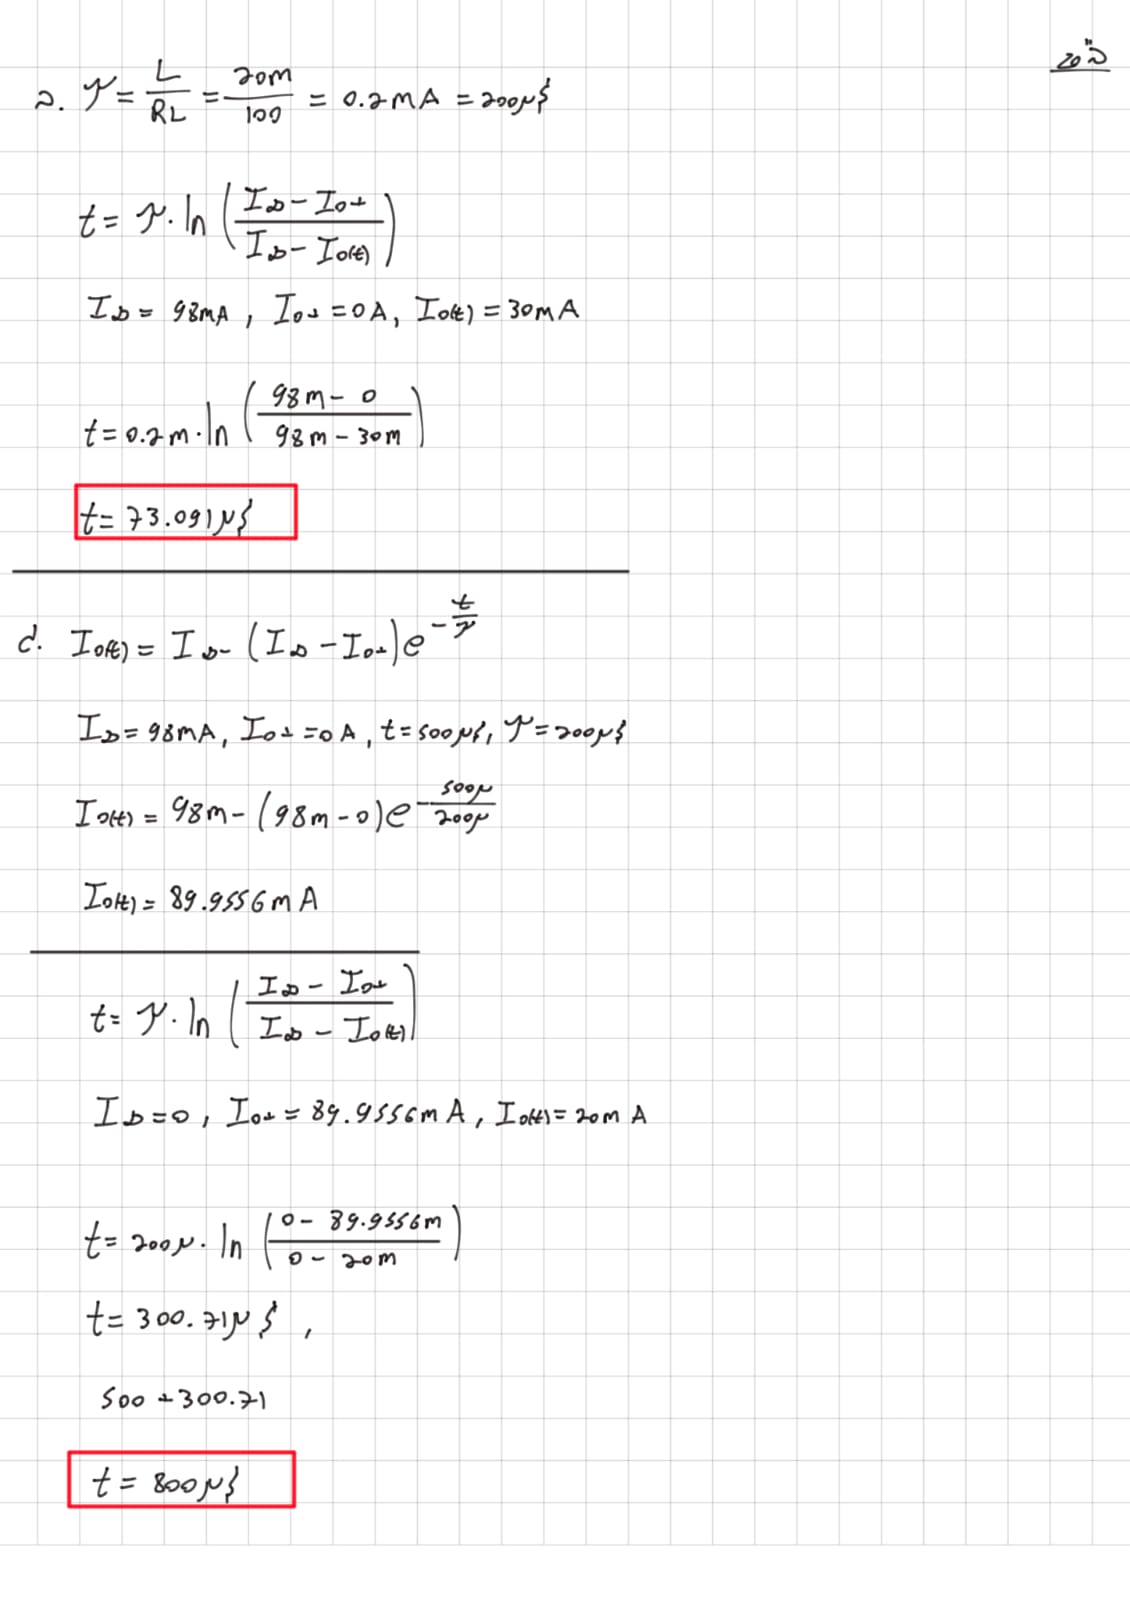 בס"ד
ב. τ = L/RL = 20m/100 = 0.2mA = 200μs
t = τ·ln((I∞ - I0+)/(I∞ - I0(t)))
I∞ = 98mA, I0+ = 0A, I0(t) = 30mA
t = 0.2m·ln((98m - 0)/(98m - 30m))
t = 73.091μs
d. I0(t) = I∞ - (I∞ - I0+)e^(-t/τ)
I∞ = 98mA, I0+ = 0A, t = 500μs, τ = 200μs
I0(t) = 98m - (98m - 0)e^(-500μ/200μ)
I0(t) = 89.9556mA
t = τ·ln((I∞ - I0+)/(I∞ - I0(t)))
I∞ = 0, I0+ = 89.9556mA, I0(t) = 20mA
t = 200μ·ln((0 - 89.9556m)/(0 - 20m))
t = 300.71μs,
500 + 300.71
t = 800μs